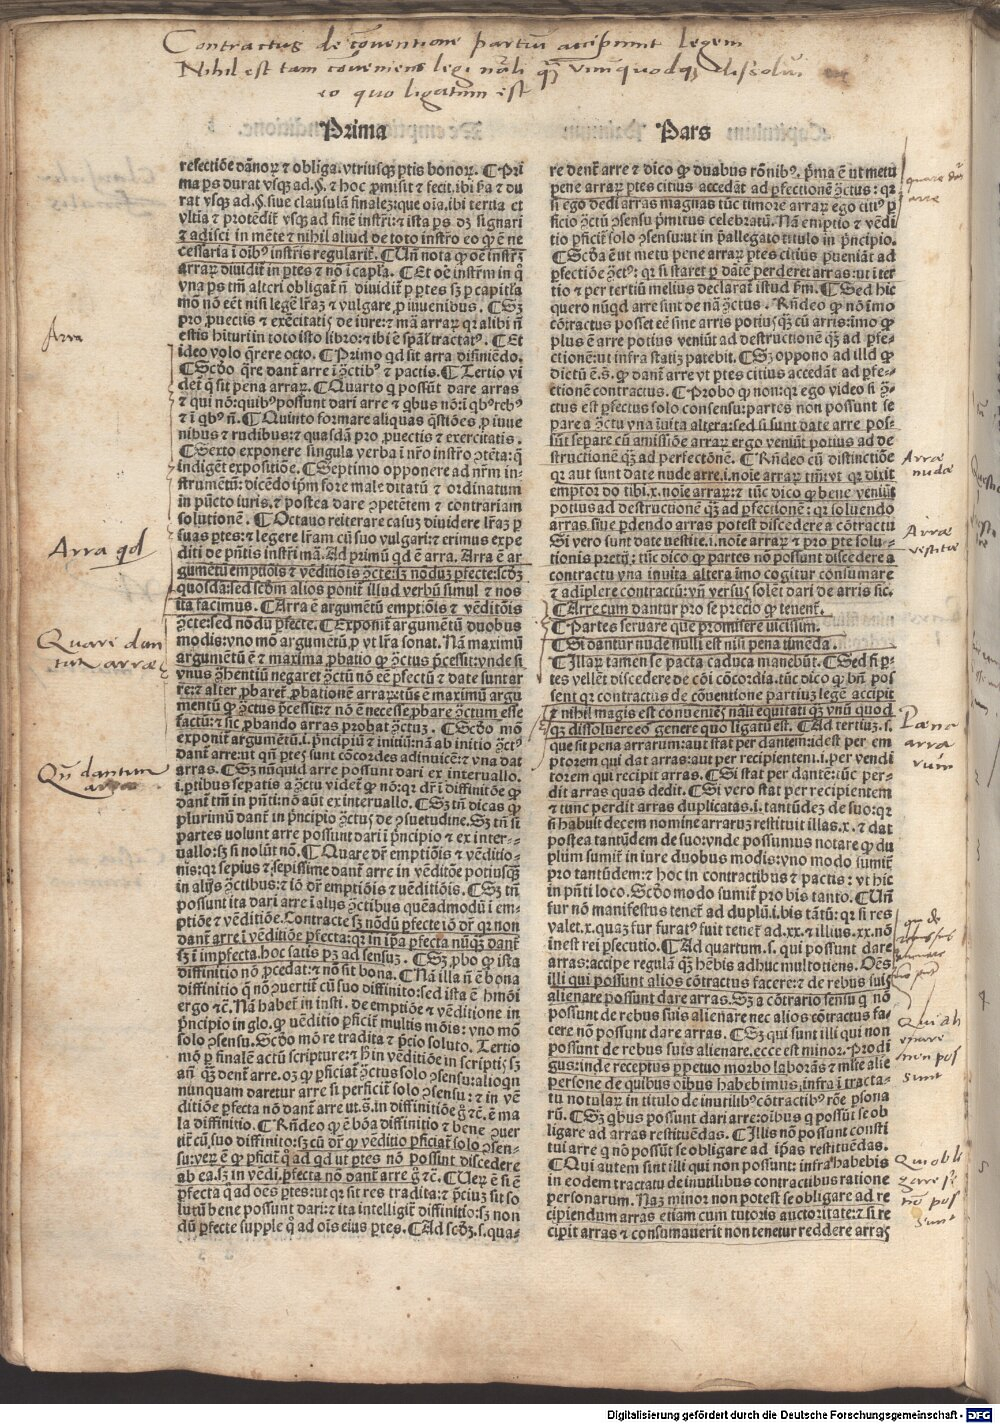 Contractus de cōventione partiū accipiunt legem
Nihil est tam cōveniens legi nāli quā vnūquodqꝫ dissolvi
eo quo ligatum est
Prima Pars
refectiōe dānoꝝ ⁊ obliga. vtriusqꝫ ꝑtis bonoꝝ. ¶ Pri
ma ps durat vsqꝫ ad. §. ⁊ hoc ꝓmisit ⁊ fecit. ibi ⁊ du
rat vsqꝫ ad. §. siue clausulā finalez: que oīa. ibi tertia et
vltīa ⁊ protēdit vsqꝫ ad finē instrī: ⁊ ista ps dꝫ signari
⁊ adisci in mēte ⁊ nihil aliud de toto instrō eo ꝙ ē ne
cessaria ī oībꝰ instrīs regularit̄. ¶ Uñ nota ꝙ oē instrꝫ
arraꝝ diuidit̄ in ꝑtes ⁊ nō ī capła. ¶ Et oē instrm in q̄
vna ps tm̄ alteri obligat̄ ñ diuidit̄ ꝑ ptes sꝫ ꝑ capitła
mō nō eēt nisi legē lr̄az ⁊ vulgare ꝓ iuuenibus. ¶ Sꝫ
pro ꝓuectis ⁊ exercitatis de iure: ⁊ mā arraꝝ qꝛ alibi ñ
estis hituri in toto isto libro: ⁊ ibi ē spāl tractatꝰ. ¶ Et
ideo volo q̄rere octo. ¶ Primo qd sit arra difiniēdo.
¶ Scd̄o q̄re dant̄ arre ī ꝯctibꝰ ⁊ pactis. ¶ Tertio vi
det̄ q̄ sit pena arraꝝ. ¶ Quarto q possūt dare arras
⁊ qui nō: quibꝰ possunt dari arre ⁊ qbus nō: ī qbꝰ rebꝰ
⁊ ī qbꝰ ñ. ¶ Quinto formare aliquas q̄stiōes ꝓ iuue
nibus ⁊ rudibus: ⁊ quasdā pro ꝓuectis ⁊ exercitatis.
¶ Sexto exponere singula verba ī nr̄o instrō ꝯtēta: q̄
indigēt expositiōe. ¶ Septimo opponere ad nr̄m in-
strumētū: dicēdo ip̄m fore male dītatū ⁊ ordinatum
in pūcto iuris, ⁊ postea dare ꝯpetētem ⁊ contrariam
solutionē. ¶ Octauo reiterare casuꝫ diuidere lr̄az ꝑ
suas ꝑtes: ⁊ legere lr̄am cū suo vulgari: ⁊ erimus expe
diti de pn̄tis instrī mā. Ad primū qd ē arra. Arra ē ar
gumētū emptiōis ⁊ vēditiōis ꝯcte: sꝫ nōdū ꝑfecte: scdꝫ
quosdā: sed scdm alios ponit̄ illud verbū simul ⁊ nos
ita facimus. ¶ Arra ē argumētū emptiōis ⁊ vēditōis
ꝯcte: sed nōdū ꝑfecte. ¶ Exponit̄ argumētū duobus
modis: vno mō argumētū ꝑ vt lr̄a sonat. Nā maximū
argumētū ē ⁊ maxima ꝓbatio ꝙ ꝯctus ꝑcessit: vnde si
vnus ꝯhentiū negaret ꝯctū nō eē ꝑfectū ⁊ date sunt ar
re: ⁊ alter ꝓbaret̄ ꝓbationē arraꝝ: tūc ē maximū argu
mentū ꝙ ꝯctus ꝑcessit: ⁊ nō ē necesse ꝓbare ꝯctum esse
factū: ⁊ sic ꝓbando arras probat ꝯctus. ¶ Scd̄o mō
exponit̄ argumētū. i. p̄ncipiū ⁊ initiū: nā ab initio ꝯctꝰ
dant̄ arre: ut qn̄ ptes sunt cōcordes adinuicē: ⁊ vna dat
arras. ¶ Sꝫ nūquid arre possunt dari ex interuallo.
i. ꝑtibus seꝑatis a ꝯctu videt̄ ꝙ nō: qꝛ dr̄ ī diffinitiōe ꝙ
dant̄ tm̄ in pn̄ti: nō aūt ex interuallo. ¶ Sꝫ tn̄ dicas ꝙ
plurimū dant̄ in p̄ncipio ꝯctus de ꝯsuetudine. Sꝫ tn̄ si
partes uolunt arre possunt dari ī p̄ncipio ⁊ ex inter-
uallo: sꝫ si nolūt nō. ¶ Quare dr̄ emptiōis ⁊ vēditio-
nis: qꝛ sepius ⁊ sepissime dant̄ arre in vēditōe potiusqꝫ
in alijs ꝯctibus: ⁊ iō dr̄ emptiōis ⁊ uēditiōis. ¶ Sꝫ tn̄
possunt ita dari arre ī alijs ꝯctibus quēadmodū ī em-
ptiōe ⁊ vēditiōe. Contracte sꝫ nōdū ꝑfecte iō dr̄ qꝛ non
dant̄ arre ī vēditiōe ꝑfecta: qꝛ in ip̄a ꝑfecta nūqꝫ dant̄
sꝫ ī imꝑfecta. hoc satis pꝫ ad sensuꝫ. ¶ Sꝫ ꝓbo ꝙ ista
diffinitio nō ꝓcedat: ⁊ nō sit bona. ¶ Nā illa ñ ē bona
diffinitio q̄ nō ꝯuertit̄ cū suo diffinito: sed ista ē hmōi
ergo ⁊c̄. Nā habet̄ in insti. de emptiōe ⁊ vēditione in
p̄ncipio in glo. ꝙ uēditio ꝑficit̄ multis mōis: vno mō
solo ꝯsensu. Scd̄o mō re tradita ⁊ p̄cio soluto. Tertio
mō ꝑ finalē actū scripture: ⁊ hꝫ in vēditiōe in scriptis sꝫ
añ qꝫ dent̄ arre. oꝫ ꝙ ꝑficiat̄ ꝯctus solo ꝯsensu: alioqn
nunquam daretur arre si perficit̄ solo ꝯsensu: ⁊ in vē
ditiōe ꝑfecta nō dant̄ arre ut. s̄. in diffinitiōe g̊ ⁊c̄. ē ma
la diffinitio. ¶ Rn̄deo ꝙ ē bōa diffinitio ⁊ bene ꝯuer
tit̄ cū suo diffinito: sꝫ cū dr̄ ꝙ vēditio ꝑficiat̄ solo ꝯsen-
su: veꝝ ē ꝙ ꝑficit̄ q̄ ad qd ut ꝑtes nō possint discedere
ab ea. sꝫ in vēdi. ꝑfecta nō dant̄ arre g̊ ⁊c̄. ¶ Ueꝝ ē si ē
ꝑfecta q̄ ad oēs ptes: ut qꝛ sit res tradita: ⁊ p̄ciuꝫ sit so
lutū bene possunt dari: ⁊ ita intelligit̄ diffinitio: sꝫ non
dū ꝑfecte supple q̄ ad oīs eius ꝑtes. ¶ Ad scdꝫ. s. qua-
re dent̄ arre ⁊ dico ꝙ duabus rōnibꝰ. p̄ma ē ut metu
pene arraꝝ ptes citius accedāt ad ꝑfectionē ꝯctus: qꝛ
si ego dedi arras magnas tūc timore arraꝝ ego citiꝰ ꝑ
ficio ꝯctū ꝯsensu p̄mitus celebratū. Nā emptio ⁊ vēdi
tio ꝑficit̄ solo ꝯsensu: ut in p̄allegato titulo in p̄ncipio.
¶ Scd̄a ē ut metu pene arraꝝ ptes citius ꝑueniāt ad
ꝑfectiōe ꝯctꝰ: qꝛ si staret ꝑ dātē perderet arras: ut ī ter
tio ⁊ per tertiū melius declarat̄ istud p̄m. ¶ Sed hic
quero nūqd arre sint de nā ꝯctus. Rn̄deo ꝙ nō īmo
cōtractus posset eē sine arris potiusqꝫ cū arris: īmo ꝙ
plus ē arre potius veniūt ad destructionē qꝫ ad ꝑfe-
ctionē: ut infra statiꝫ patebit. ¶ Sꝫ oppono ad illd ꝙ
dictū ē. s̄. ꝙ dant̄ arre vt ptes citius accedāt ad ꝑfe-
ctionē contractus. ¶ Probo ꝙ non: qꝛ ego video si ꝯ-
ctus est ꝑfectus solo consensu: partes non possunt se
pare a ꝯctu vna īuita altera: sed si sunt date arre pos-
sūt separe cū amissiōe arraꝝ ergo veniūt potius ad de
structionē qꝫ ad perfectōnē. ¶ Rn̄deo cū distinctiōe
qꝛ aut sunt date nude arre. i. noīe arraꝝ tm̄: vt qꝛ dixit
emptor do tibi. x. noīe arraꝝ: ⁊ tūc dico ꝙ bene veniūt
potius ad destructionē qꝫ ad ꝑfectionē: qꝛ soluendo
arras. siue ꝑdendo arras potest discedere a cōtractu
Si vero sunt date vestite. i. noīe arraꝝ ⁊ pro pte solu-
tionis pretij: tūc dico ꝙ partes nō possunt discedere a
contractu vna inuita altera īmo cogitur consumare
⁊ adīplere contractū: vn̄ versus solēt dari de arris sic.
¶ Arre cum dantur pro se precio ꝙ tenent̄.
¶ Partes seruare que promisere uicissim.
¶ Si dantur nude nulli est nisi pena timēda.
¶ Illaꝝ tamen se pacta caduca manebūt. ¶ Sed si p-
tes vellēt discedere de cōi cōcordia. tūc dico ꝙ bn̄ pos
sent qꝛ contractus de cōuentione partiuꝫ legē accipit
⁊ nihil magis est conueniēs nāli equitati qꝫ vnū quod
qꝫ dissoluere eo genere quo ligatū est. ¶ Ad tertiuꝫ. s.
que sit pena arrarum: aut stat per dantem: idest per em
ptorem qui dat arras: aut per recipientem. i. per vendi
torem qui recipit arras. ¶ Si stat per dantē: tūc per-
dit arras quas dedit. ¶ Si vero stat per recipientem
⁊ tunc perdit arras duplicatas. i. tantūdeꝫ de suo: qꝛ
si habuit decem nomine arraruꝫ restituit illas. x. ⁊ dat
postea tantūdem de suo: vnde possumus notare ꝙ du
plum sumit̄ in iure duobus modis: vno modo sumit̄
pro tantūdem: ⁊ hoc in contractibus ⁊ pactis: vt hic
in pn̄ti loco. Scd̄o modo sumit̄ pro bis tanto. ¶ Un̄
fur nō manifestus tenet̄ ad duplū. i. bis tātū: qꝛ si res
valet. x. quaꝫ fur furatꝰ fuit tenet̄ ad. xx. ⁊ illius. xx. nō
inest rei ꝑsecutio. ¶ Ad quartum. s. qui possunt dare
arras: accipe regulā qꝫ hēbis adhuc multotiens. Oēs
illi qui possunt alios cōtractus facere: ⁊ de rebus suis
alienare possunt dare arras. Sꝫ a cōtrario sensu q̄ nō
possunt de rebus suis alienare nec alios cōtractus fa-
cere nō possunt dare arras. ¶ Sꝫ qui sunt illi qui non
possunt de rebus suis alienare. ecce est minor. Prodi
gus: inde receptus ꝑpetuo morbo laborās ⁊ mīte alie
persone de quibus oībus habebimus, infra ī tracta-
tu notulaꝝ in titulo de inutilibꝰ cōtractibꝰ rōe ꝑsona
rū. ¶ Sꝫ qbus possunt dari arre: oībus q possūt se ob
ligare ad arras restituēdas. ¶ Illis nō possunt consti
tui arre q nō possūt se obligare ad ip̄as restituēdas.
¶ Qui autem sunt illi qui non possunt: infra habebis
in eodem tractatu de inutilibus contractibus ratione
personarum. Naꝫ minor non potest se obligare ad re
cipiendum arras etiam cum tutoris auctoritate: ⁊ si re
cipit arras ⁊ consumauerit non tenetur reddere arras
Arra
Arra qd
Quare dan
tur arrae
Qn̄ dantur
arrae
quare dāt
arre
Arrae
nudae
Arrae
vestitae
Poena
arra
rum
Qui ali
enare
non pos
sunt
Qui obli
gare se
nō pos
sunt
Digitalisierung gefördert durch die Deutsche Forschungsgemeinschaft - DFG